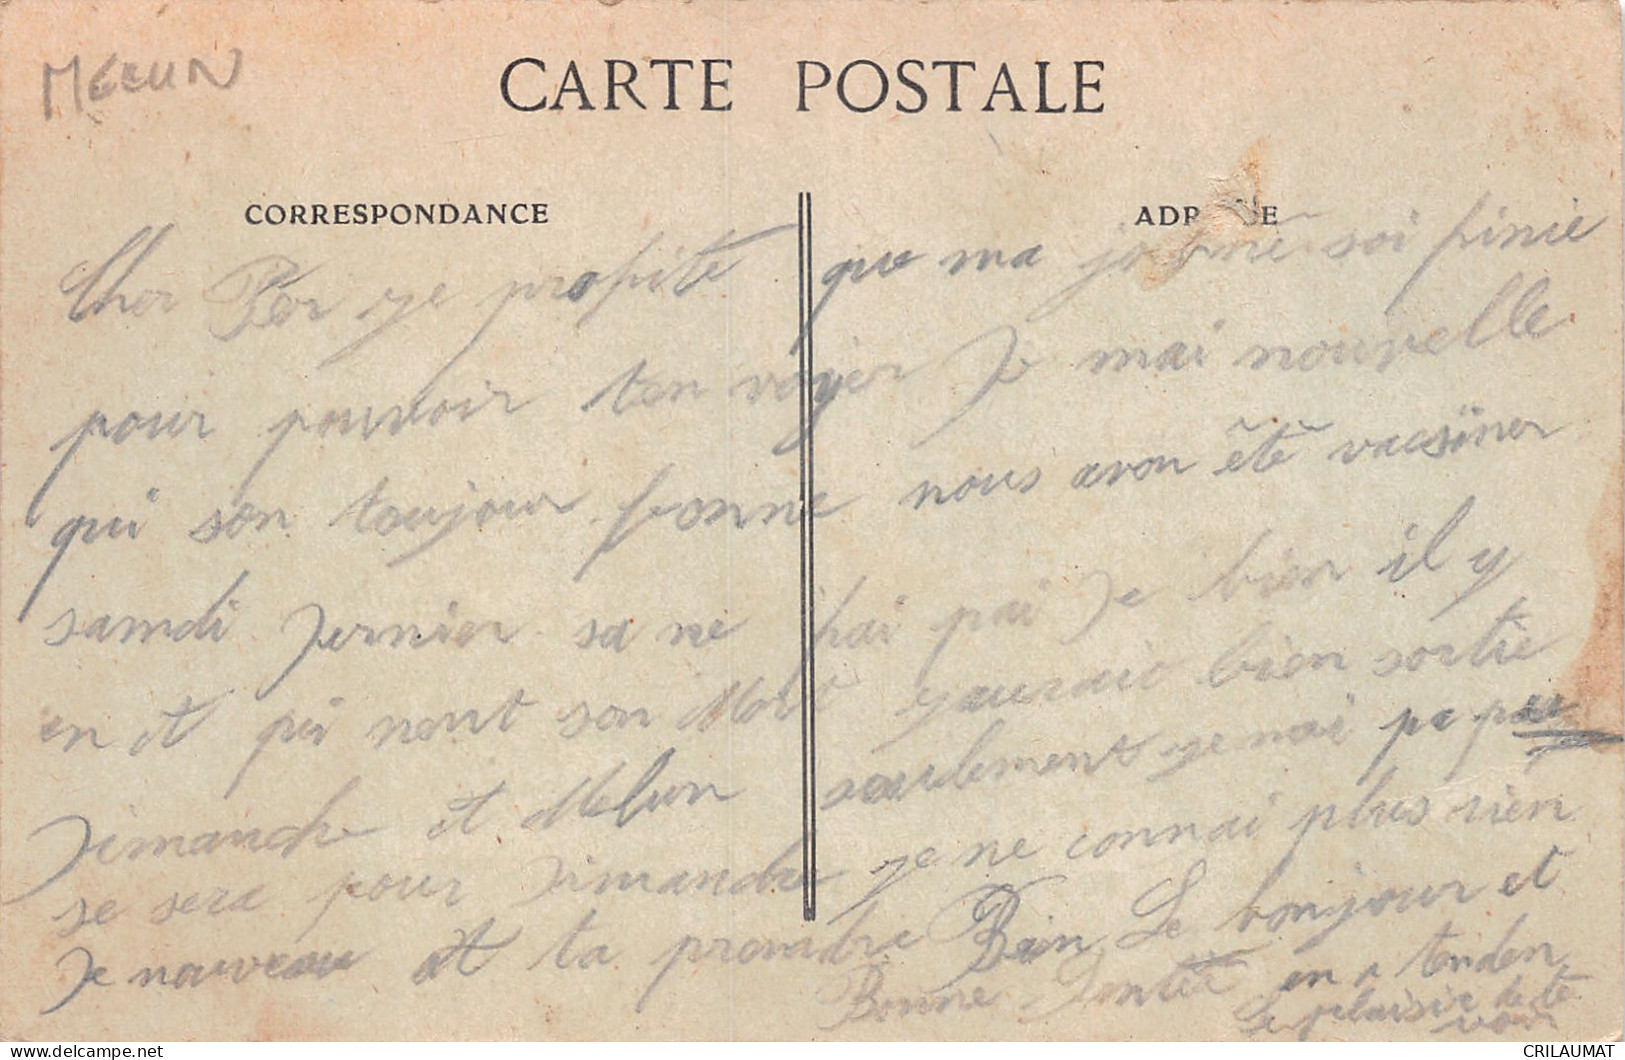 MELUN
CARTE POSTALE
CORRESPONDANCE
ADR E
Cher Per je profite que ma journé soi finie
pour pouvoir ten voyer de mai nouvelle
qui son toujour bonne nous avon été vacsiner
samdi dernier sa ne pai de bien il y
en et qui nent son Mort yauraio bien sortie
dimanche et Melun seulement je nai pa pau
se sera pour dimanche je ne connai plus rien
de nauveau et ta prendre Bien Le bonjour et
Bonne Santée en a tenden
Le plaisir de te
voir
CRILAUMAT